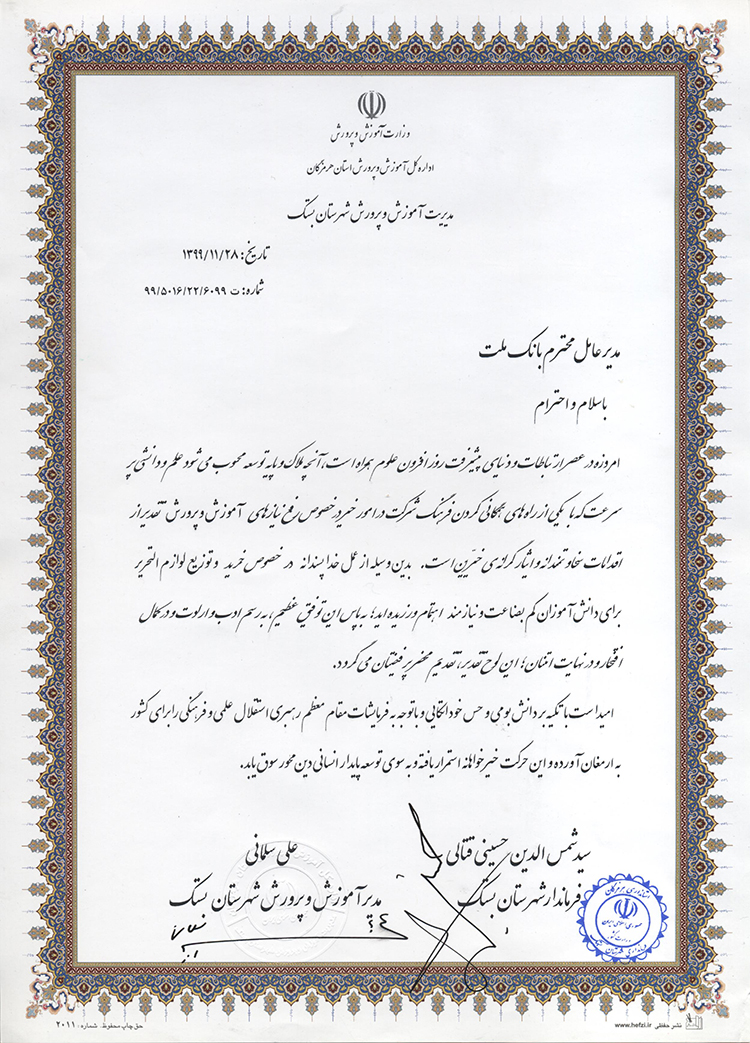 وزارت آموزش و پرورش
اداره کل آموزش و پرورش استان هرمزگان
مدیریت آموزش و پرورش شهرستان بستک
تاریخ: ۱۳۹۹/۱۱/۲۸
شماره: ت ۹۹/۵۰۱۶/۲۲/۶۰۹۹
مدیر عامل محترم بانک ملت
با سلام و احترام
امروزه در عصر ارتباطات و دنیایی پیشرفت روز افزون علوم همراه است، آنچه پلاک و پایه توسعه محسوب می شود علم و دانشی پر
سرعت که با یکی از راه های همگانی کردن فرهنگ شرکت در امور خیر در خصوص رفع نیازهای آموزش و پرورش تقدیر از
اقدامات سخاوتمندانه و ایثارگرانه ی خیّرین است. بدین وسیله از عمل خداپسندانه در خصوص خرید و توزیع لوازم التحریر
برای دانش آموزان کم بضاعت و نیازمند اهتمام ورزیده اید؛ به پاس این توفیق عظیم، به رسم ادب و ارادت و در کمال
افتخار و در نهایت امتنان؛ این لوح تقدیر، تقدیم محضر پرفیضتان می گردد.
امید است با تکیه بر دانش بومی و حس خود اتکایی و با توجه به فرمایشات مقام معظم رهبری استقلال علمی و فرهنگی را برای کشور
به ارمغان آورده و این حرکت خیرخواهانه استمرار یافته و به سوی توسعه پایدار انسانی دین محور سوق یابد.
سید شمس الدین حسینی قتالی
علی سلمانی
فرماندار شهرستان بستک
مدیر آموزش و پرورش شهرستان بستک
استانداری هرمزگان
جمهوری اسلامی ایران
وزارت کشور
نشر حفظی www.hefzi.ir
حق چاپ محفوظ. شماره: ۲۰۱۱